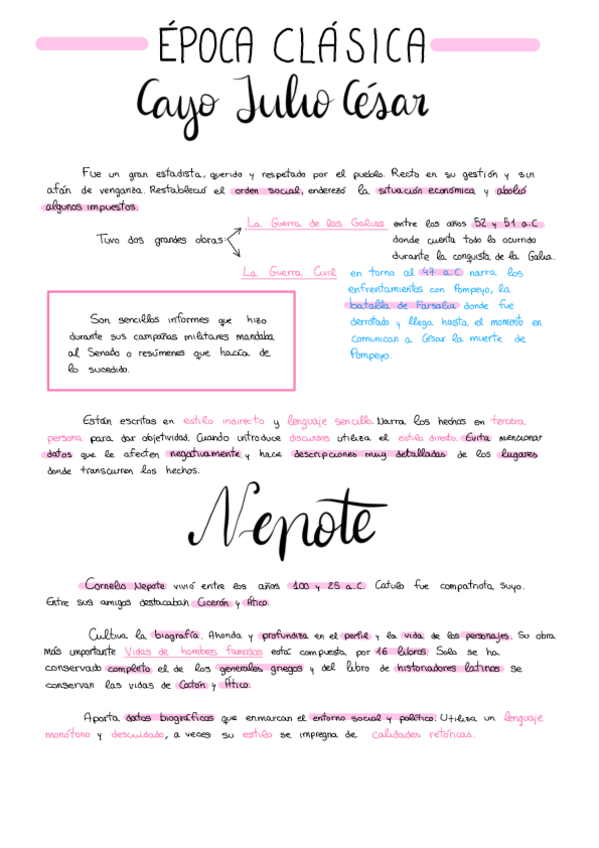 ÉPOCA CLÁSICA
Cayo Julio César
Fue un gran estadista, querido y respetado por el pueblo. Recto en su gestión y sin
afán de venganza. Restableció el orden social, enderezó la situación económica y abolió
algunos impuestos.
Tuvo dos grandes obras:
La Guerra de las Galias entre los años 52 y 51 a.C
donde cuenta todo lo ocurrido
durante la conquista de la Galia.
La Guerra Civil en torno al 47 a.C narra los
enfrentamientos con Pompeyo, la
batalla de Farsalia donde fue
derrotado y llega hasta el momento en
comunican a César la muerte de
Pompeyo.
Son sencillos informes que hizo
durante sus campañas militares mandaba
al Senado o resúmenes que hacía de
lo sucedido.
Están escritas en estilo indirecto y lenguaje sencillo. Narra los hechos en tercera
persona para dar objetividad. Cuando introduce discursos utiliza el estilo directo. Evita mencionar
datos que le afecten negativamente y hace descripciones muy detalladas de los lugares
donde transcurren los hechos.
Nepote
Cornelio Nepote vivió entre los años 100 y 25 a.C. Catulo fue compatriota suyo.
Entre sus amigos destacaban Cicerón y Ático.
Cultiva la biografía. Ahonda y profundiza en el perfil y la vida de los personajes. Su obra
más importante Vidas de hombres famosos está compuesta por 16 libros. Solo se ha
conservado completo el de los generales griegos y del libro de historiadores latinos se
conservan las vidas de Catón y Ático.
Aporta datos biográficos que enmarcan el entorno social y político. Utiliza un lenguaje
monótono y descuidado, a veces su estilo se impregna de calidades retóricas.